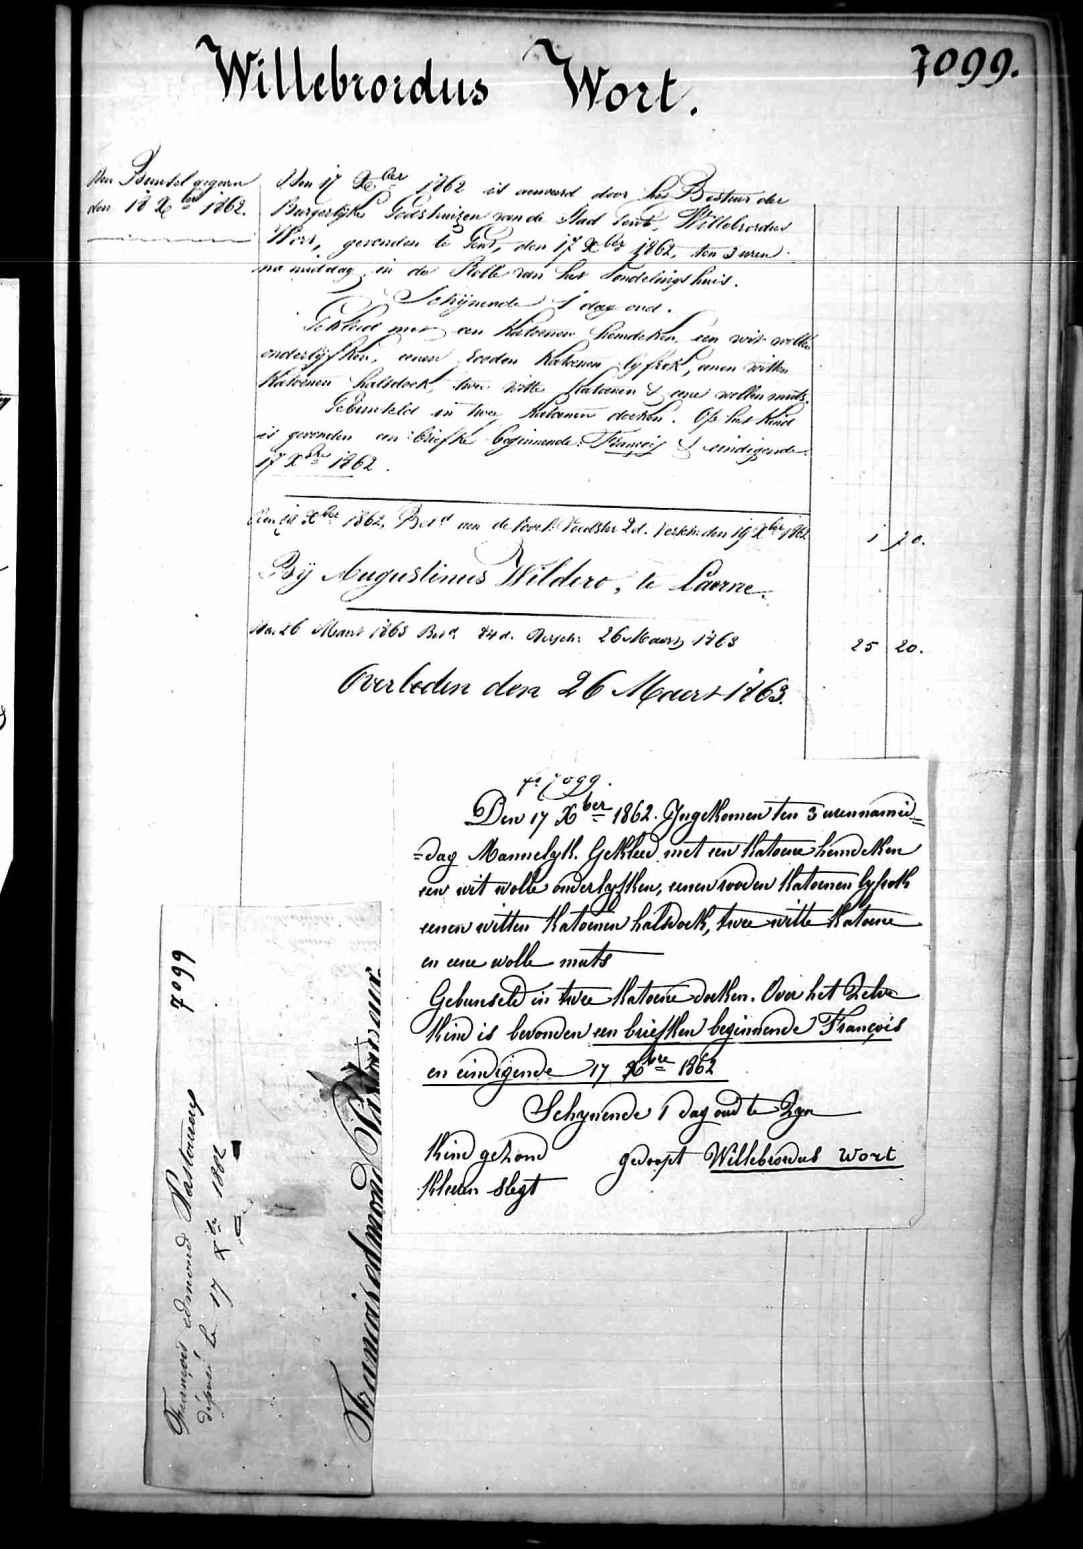 7099.
Willebrordus Wort.
Den Bundel gegeven
den 18 Xber 1862.
Den 17 Xber 1862 is aenveerd door het Bestuur der
Burgerlijke Godshuizen van de Stad Gent, Willebrordus
Wort, gevonden te Gent, den 17 Xber 1862, ten 3 uren
na middag, in de Rolle van het Vondelingshuis.
Schijnende 1 dag oud.
Gekleed met een Katoenen hemdeken, een wit wollen
onderlijfken, eenen rooden Katoenen lyfrok, eenen witten
Katoenen halsdoek, twee witte Katoenen & eene wollen muts.
Gebunseld in twee Katoenen doeken. Op het Kind
is gevonden een briefke beginnende: François & eindigende
17 Xbre 1862.
Den 19 Xber 1862, Betd aen de 2d. den 19 Xber 1862
1 70.
Bÿ Augustinus Wildero, te Laerne.
Den 26 Maert 1863 Betd 84 d. 26 Maert 1863
25 20.
Overleden den 26 Maert 1863.
7099.
Den 17 Xber 1862. Ingekomen ten 3 uren namid=
=dag Mannelyk. Gekleed met een Katoene hemdeken
een wit wolle onderlyfken, eenen rooden Katoenen lyfrok
eenen witten Katoenen halsdoek, twee witte Katoene
en eene wolle muts
Gebunseld in twee Katoene doeken. Over het Zelve
Kind is bevonden een briefken beginnende François
en eindigende 17 Xbre 1862
Schynende 1 dag oud te Zyn
Kind gezond gedoopt Willebrordus Wort
Kleeren slegt
7099
François edmond Pastouur
déposé le 17 Xbre 1862
François edmond